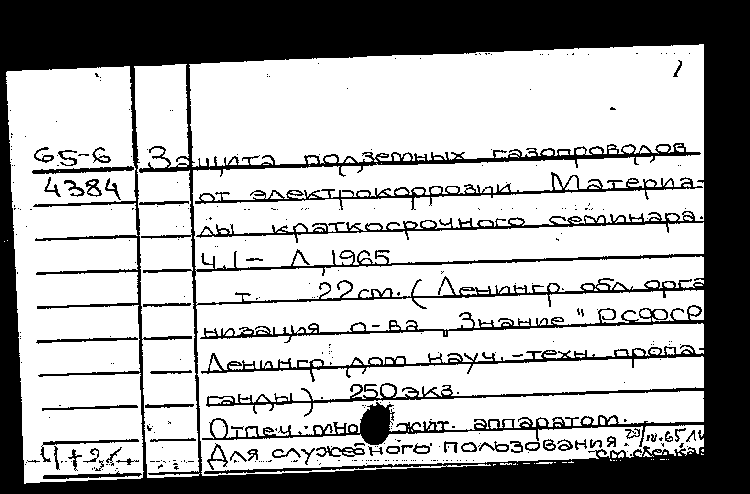 1
65-6 Защита подземных газопроводов
4384 от электрокоррозии. Материа-
лы краткосрочного семинара.
Ч.1- Л, 1965
т. 22 cm. (Ленингр. обл. орга
низация о-ва "Знание" РСФСР
Ленингр. дом науч.-техн. пропа-
ганды). 250 экз.
Отпеч. мно жит. аппаратом.
Для служебного пользования.
см. след. кар